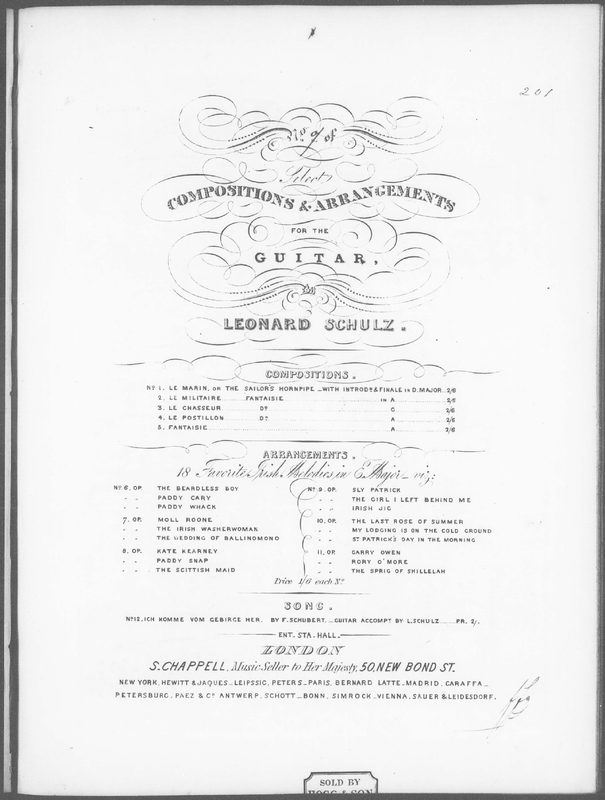 201
No. 9. of
Select
COMPOSITIONS & ARRANGEMENTS
FOR THE
GUITAR,
By
LEONARD SCHULZ.
COMPOSITIONS.
No 1. LE MARIN, OR THE SAILOR'S HORNPIPE _ WITH INTRODn & FINALE IN D. MAJOR _ 2/6
2. LE MILITAIRE FANTAISIE IN A 2/6
3. LE CHASSEUR Do C 2/6
4. LE POSTILLON Do A 2/6
5. FANTAISIE A 2/6
ARRANGEMENTS.
18 Favorite Irish Melodies in E Major viz:
No 6. OP. THE BEARDLESS BOY
" " PADDY CARY
" " PADDY WHACK
7. OP. MOLL ROONE
" " THE IRISH WASHERWOMAN
" " THE WEDDING OF BALLINOMONO
8. OP. KATE KEARNEY
" " PADDY SNAP
" " THE SCITTISH MAID
No 9. OP. SLY PATRICK
" " THE GIRL I LEFT BEHIND ME
" " IRISH JIG
10. OP. THE LAST ROSE OF SUMMER
" " MY LODGING IS ON THE COLD GROUND
" " ST PATRICK'S DAY IN THE MORNING
11. OP GARRY OWEN
" " RORY O'MORE
" " THE SPRIG OF SHILLELAH
Price 1/6 each No
SONG.
No 12. ICH KOMME VOM GEBIRGE HER. BY F. SCHUBERT. _ GUITAR ACCOMPt BY L. SCHULZ PR. 2/.
ENT. STA. HALL.
LONDON
S. CHAPPELL, Music Seller to Her Majesty, 50, NEW BOND ST.
NEW YORK, HEWITT & JAQUES _ LEIPSSIC, PETERS _ PARIS, BERNARD LATTE _ MADRID, CARAFFA _
PETERSBURG, PAEZ & Co ANTWERP, SCHOTT _ BONN, SIMROCK _ VIENNA, SAUER & LEIDESDORF.
SOLD BY
HOGG & SON